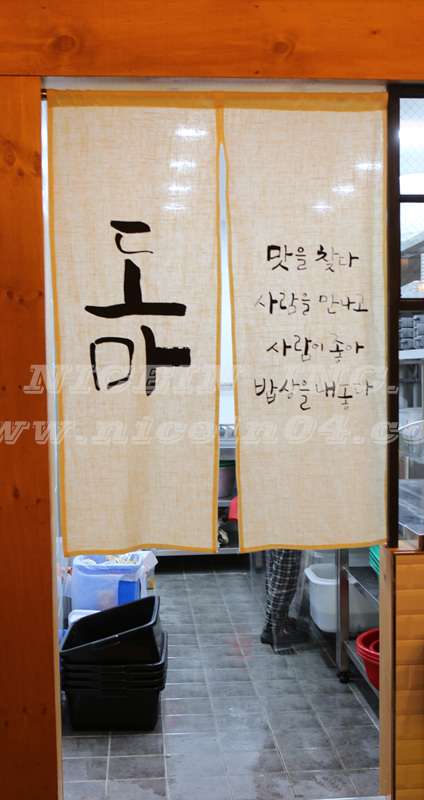 도
마
맛을 찾다
사람을 만나고
사람이 좋아
밥상을 내놓다
NICEIN INC.
www.nicein04.co